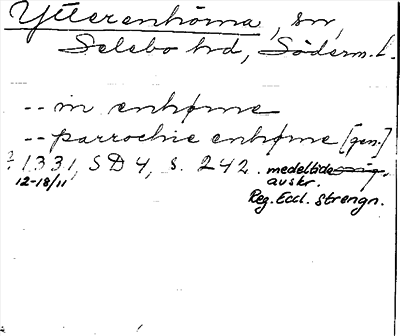 Ytterenhörna, sn,
Selebo hd, Söderm.l.
-- in enhørne
-- parrochie enhørne [gen.]
? 1331, SD 4, s. 242. medeltida
12-18/11 avskr.
Reg. Eccl. Strengn.